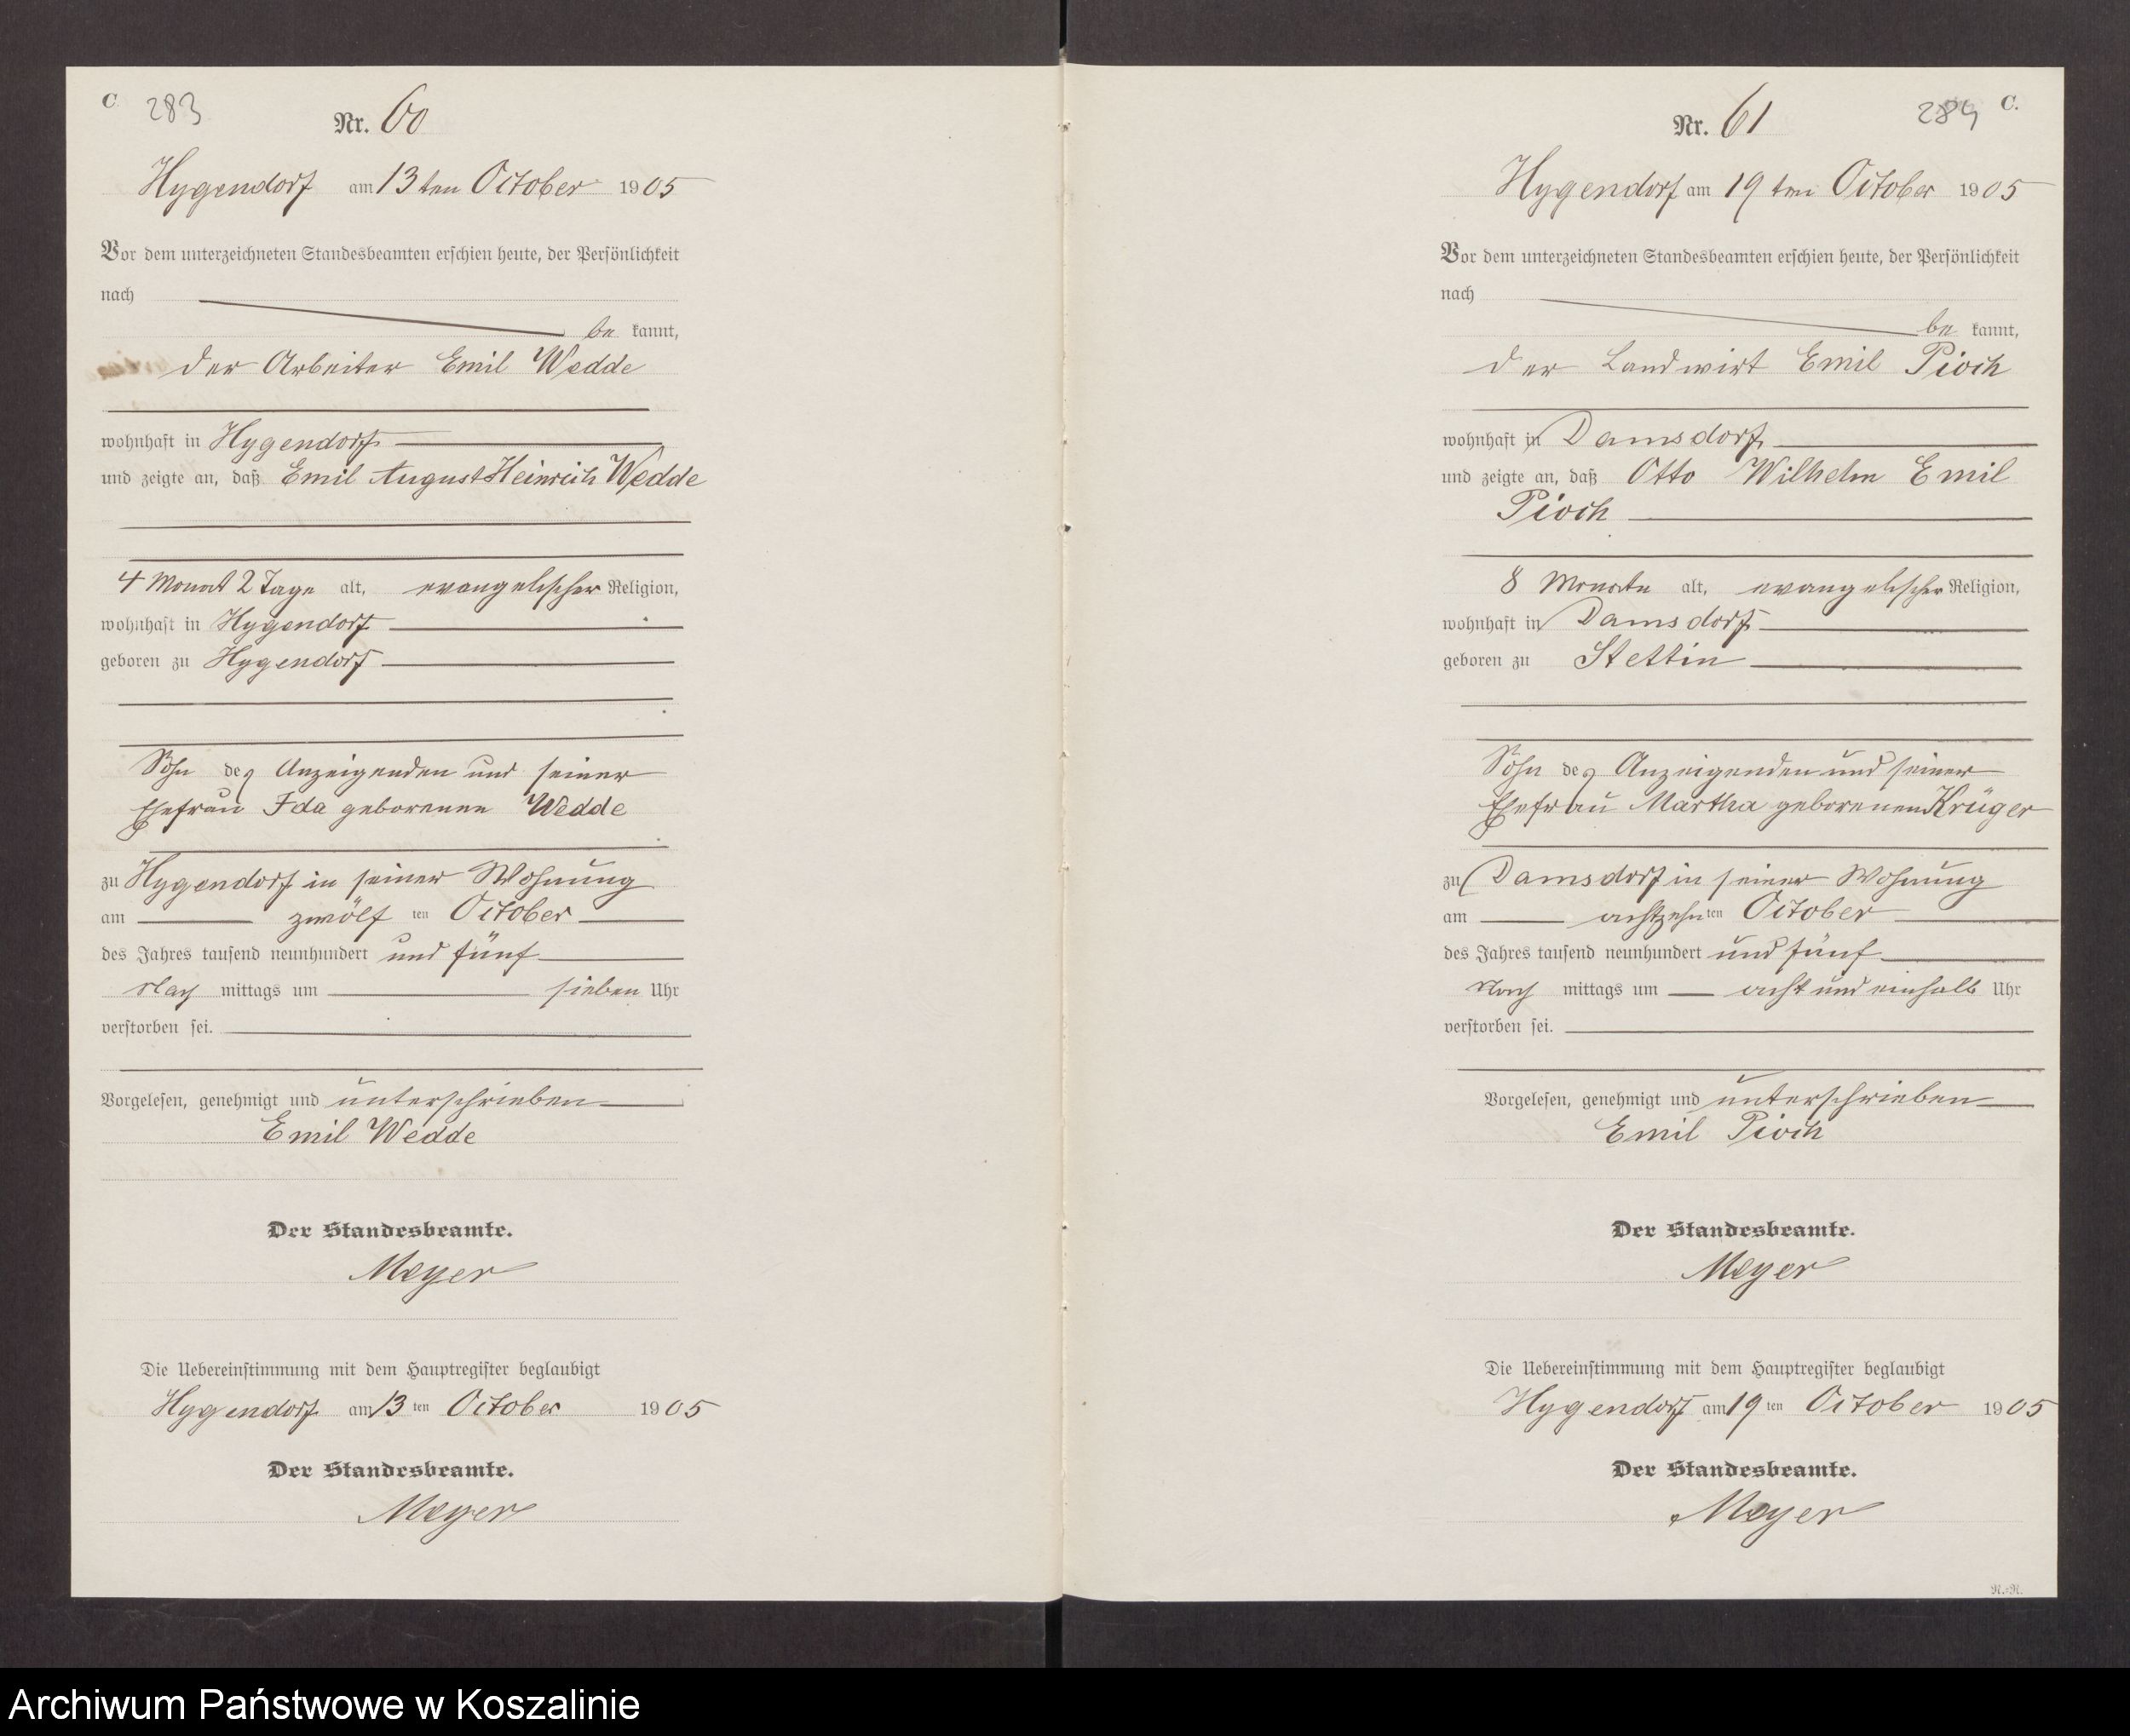 C. 283
Nr. 60
Hygendorf am 13ten October 1905
Vor dem unterzeichneten Standesbeamten erschien heute, der Persönlichkeit
nach
be kannt,
der Arbeiter Emil Wedde
wohnhaft in Hygendorf
und zeigte an, daß Emil August Heinrich Wedde
4 Monat 2 Tage alt, evangelischer Religion,
wohnhaft in Hygendorf
geboren zu Hygendorf
Sohn des Anzeigenden und seiner
Ehefrau Ida geborenen Wedde
zu Hygendorf in seiner Wohnung
am zwölf ten October
des Jahres tausend neunhundert und fünf
Nach mittags um sieben Uhr
verstorben sei.
Vorgelesen, genehmigt und unterschrieben
Emil Wedde
Der Standesbeamte.
Meyer
Die Uebereinstimmung mit dem Hauptregister beglaubigt
Hygendorf am 13 ten October 1905
Der Standesbeamte.
Meyer
284 C.
Nr. 61
Hygendorf am 19 ten October 1905
Vor dem unterzeichneten Standesbeamten erschien heute, der Persönlichkeit
nach
be kannt,
der Landwirt Emil Pioch
wohnhaft in Damsdorf
und zeigte an, daß Otto Wilhelm Emil
Pioch
8 Monate alt, evangelischer Religion,
wohnhaft in Damsdorf
geboren zu Stettin
Sohn des Anzeigenden und seiner
Ehefrau Martha geborenen Krüger
zu Damsdorf in seiner Wohnung
am achtzehn ten October
des Jahres tausend neunhundert und fünf
Nach mittags um acht und einhalb Uhr
verstorben sei.
Vorgelesen, genehmigt und unterschrieben
Emil Pioch
Der Standesbeamte.
Meyer
Die Uebereinstimmung mit dem Hauptregister beglaubigt
Hygendorf am 19 ten October 1905
Der Standesbeamte.
Meyer
Archiwum Państwowe w Koszalinie